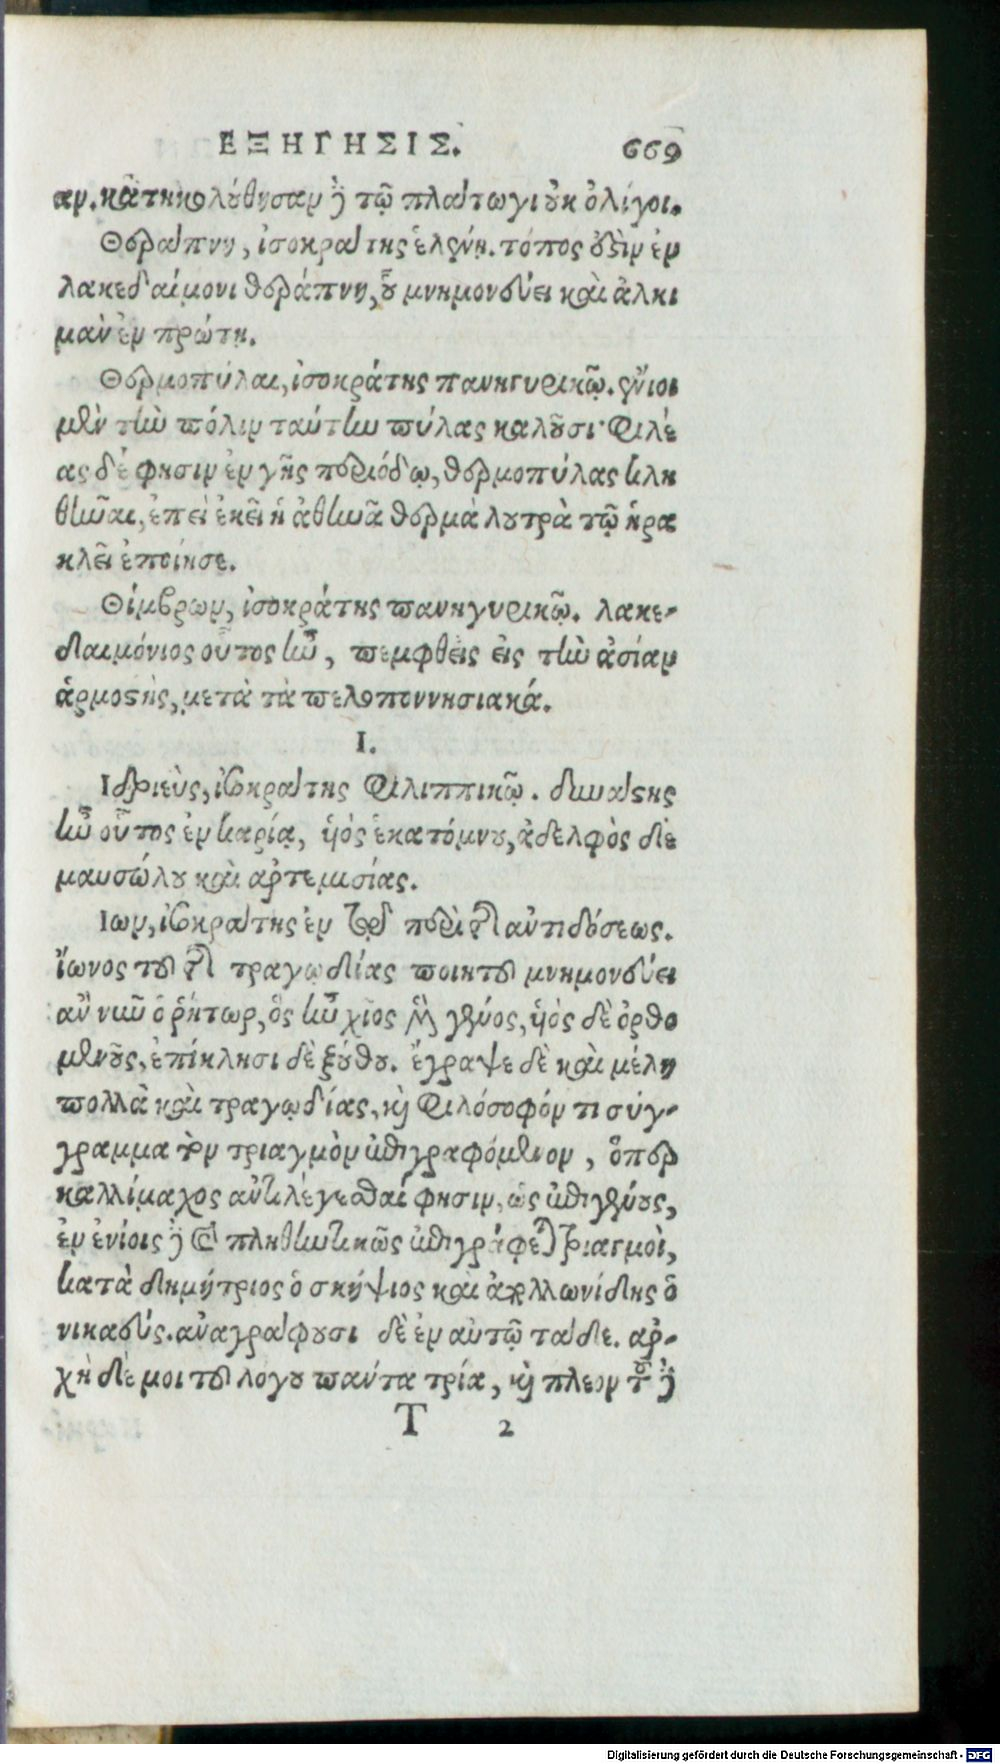 ΕΞΗΓΗΣΙΣ. 669
αν. κατηκολούθησαν δὲ τῷ πλάτωνι οὐκ ὀλίγοι.
Θεράπνη, ἰσοκράτης ἑλένῃ. τόπος ἐστὶν ἐν
λακεδαίμονι θεράπνη, οὗ μνημονεύει καὶ ἀλκι
μὰν ἐν πρώτῃ.
Θερμοπύλαι, ἰσοκράτης πανηγυρικῷ. ἔνιοι
μὲν τὴν πόλιν ταύτην πύλας καλοῦσι· φιλέ
ας δέ φησιν ἐν γῆς περιόδῳ, θερμοπύλας κλη
θῆναι, ἐπεὶ ἐκεῖ ἡ ἀθηνᾶ θερμὰ λουτρὰ τῷ ἡρα
κλεῖ ἐποίησε.
Θίμβρων, ἰσοκράτης πανηγυρικῷ. λακε-
δαιμόνιος οὗτος ἦν, πεμφθεὶς εἰς τὴν ἀσίαν
ἁρμοστὴς, μετὰ τὰ πελοποννησιακά.
Ι.
Ιδριεὺς, ἰσοκράτης φιλιππικῷ. δυνάστης
ἦν οὗτος ἐν καρίᾳ, υἱὸς ἑκατόμνου, ἀδελφὸς δὲ
μαυσώλου καὶ ἀρτεμισίας.
Ιων, ἰσοκράτης ἐν τῷ περὶ τῆς ἀντιδόσεως.
ἴωνος τοῦ τῆς τραγῳδίας ποιητοῦ μνημονεύει
ἂν νῦν ὁ ῥήτωρ, ὃς ἦν χῖος μὲν γένος, υἱὸς δὲ ὀρθο
μένους, ἐπίκλησι δὲ ξούθου. ἔγραψε δὲ καὶ μέλη
πολλὰ καὶ τραγῳδίας, καὶ φιλόσοφόν τι σύγ-
γραμμα τὸν τριαγμὸν ἐπιγραφόμενον, ὅπερ
καλλίμαχος ἀντιλέγεσθαί φησιν, ὡς ἐπιγένους,
ἐν ἐνίοις δὲ καὶ πληθυντικῶς ἐπιγράφεται τριαγμοὶ,
κατὰ δημήτριος ὁ σκήψιος καὶ ἀπολλωνίδης ὁ
νικαεύς. ἀναγράφουσι δὲ ἐν αὐτῷ τάδε. ἀρ-
χὴ δέ μοι τοῦ λόγου πάντα τρία, καὶ πλέον τοῦ δὲ
T 2
Digitalisierung gefördert durch die Deutsche Forschungsgemeinschaft - DFG